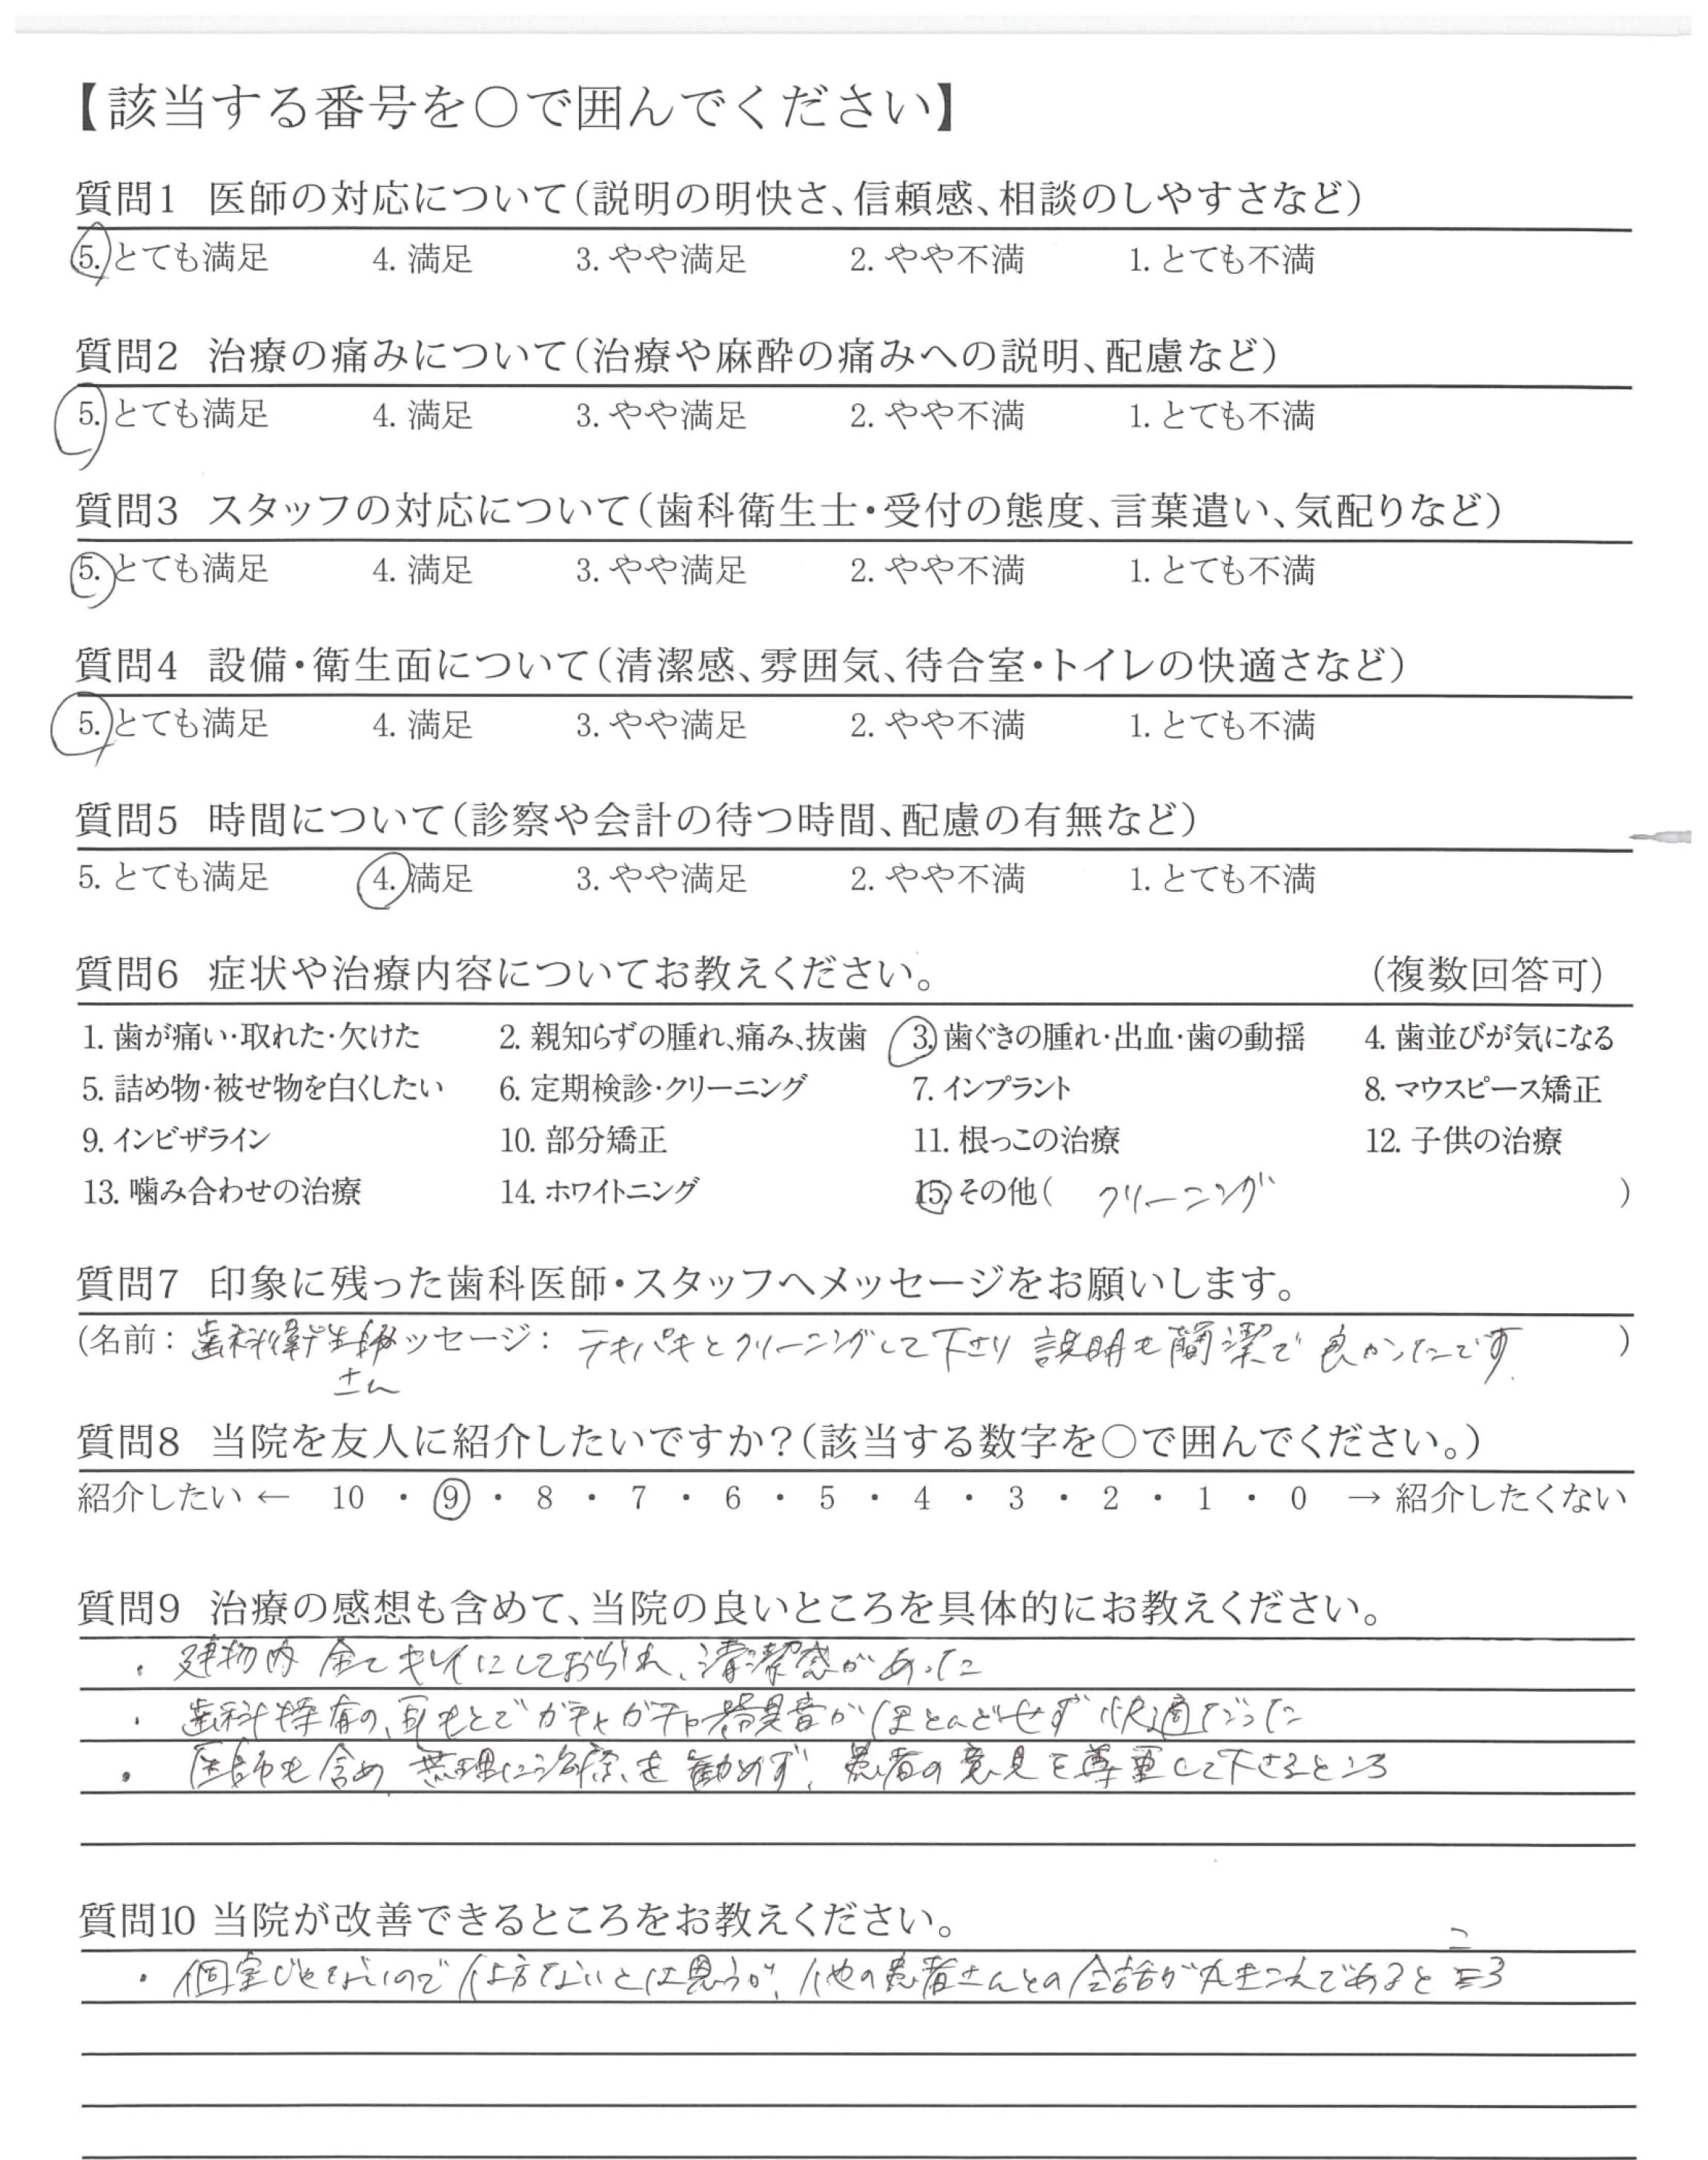 【該当する番号を○で囲んでください】
質問1 医師の対応について(説明の明快さ、信頼感、相談のしやすさなど)
5. とても満足 4. 満足 3. やや満足 2. やや不満 1. とても不満
質問2 治療の痛みについて(治療や麻酔の痛みへの説明、配慮など)
5. とても満足 4. 満足 3. やや満足 2. やや不満 1. とても不満
質問3 スタッフの対応について(歯科衛生士・受付の態度、言葉遣い、気配りなど)
5. とても満足 4. 満足 3. やや満足 2. やや不満 1. とても不満
質問4 設備・衛生面について(清潔感、雰囲気、待合室・トイレの快適さなど)
5. とても満足 4. 満足 3. やや満足 2. やや不満 1. とても不満
質問5 時間について(診察や会計の待つ時間、配慮の有無など)
5. とても満足 4. 満足 3. やや満足 2. やや不満 1. とても不満
質問6 症状や治療内容についてお教えください。 (複数回答可)
1. 歯が痛い・取れた・欠けた 2. 親知らずの腫れ、痛み、抜歯 3. 歯ぐきの腫れ・出血・歯の動揺 4. 歯並びが気になる
5. 詰め物・被せ物を白くしたい 6. 定期検診・クリーニング 7. インプラント 8. マウスピース矯正
9. インビザライン 10. 部分矯正 11. 根っこの治療 12. 子供の治療
13. 噛み合わせの治療 14. ホワイトニング 15. その他( クリーニング )
質問7 印象に残った歯科医師・スタッフへメッセージをお願いします。
(名前: 歯科衛生師 メッセージ: テキパキとクリーニングして下さり 説明も簡潔で良かったです. )
さん
質問8 当院を友人に紹介したいですか?(該当する数字を○で囲んでください。)
紹介したい ← 10 ・ 9 ・ 8 ・ 7 ・ 6 ・ 5 ・ 4 ・ 3 ・ 2 ・ 1 ・ 0 → 紹介したくない
質問9 治療の感想も含めて、当院の良いところを具体的にお教えください。
・ 建物内 全てキレイにしておられ、清潔感があった
・ 歯科特有の、耳もとでガチャガチャ器具音がほとんどせず 快適だった
・ 医師も含め 無理に治療を勧めず、患者の意見を尊重して下さるところ
質問10 当院が改善できるところをお教えください。
・ 個室じゃないので仕方ないとは思うが、他の患者さんとの会話が丸聞こえであるところ